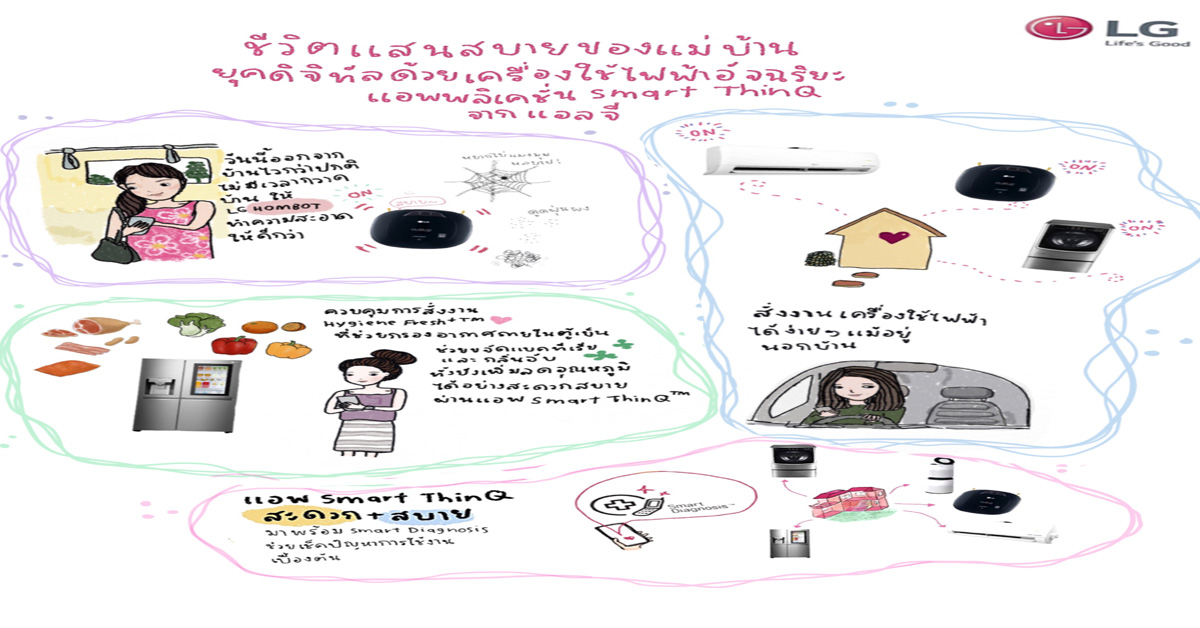 LG
Life's Good
ชีวิตแสนสบายของแม่บ้าน
ยุคดิจิทัลด้วยเครื่องใช้ไฟฟ้าอัจฉริยะ
แอพพลิเคชั่น Smart ThinQ
จากแอลจี
วันนี้ออกจาก
บ้านไวกว่าปกติ
ไม่มีเวลากวาด
บ้าน ให้
LG HOMBOT
ทำความสะอาด
ให้ดีกว่า
หยากไย่แมงมุม
ON
สบาย~
ดูดฝุ่นผง
ON
ON
ON
สั่งงาน เครื่องใช้ไฟฟ้า
ได้ง่ายๆ แม้อยู่
นอกบ้าน
ควบคุมการสั่งงาน
Hygiene Fresh+™
ที่ช่วยกรองอากาศภายในตู้เย็น
ช่วยขจัดแบคทีเรีย
และกลิ่นอับ
ทั้งยังเพิ่มลดอุณหภูมิ
ได้อย่างสะดวกสบาย
ผ่านแอพ Smart ThinQ™
แอพ Smart ThinQ
สะดวก+สบาย
มาพร้อม Smart Diagnosis
ช่วยเช็คปัญหาการใช้งาน
เบื้องต้น
Smart
Diagnosis™